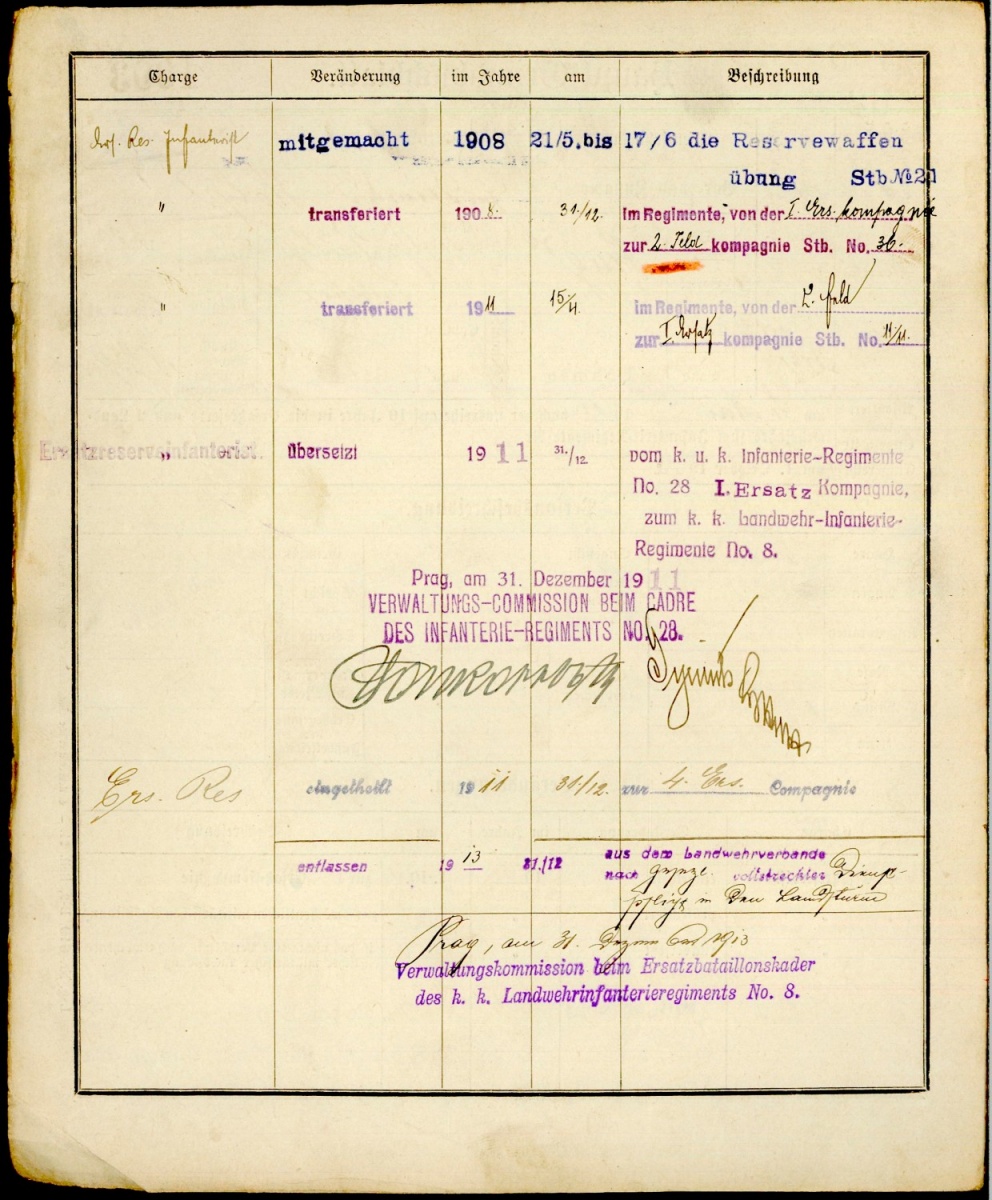 Charge Veränderung im Jahre am Beschreibung
Ers. Res. Infanterist mitgemacht 1908 21/5. bis 17/6 die Reservewaffen
übung Stb.№21
" transferiert 1908. 31./12. im Regimente, von der I. Ers. kompagnie
zur 2. Feld kompagnie Stb. No. 36.
" transferiert 1911 15/4. im Regimente, von der 2. Feld
zur I. Ersatz kompagnie Stb. No. 11/11.
Ersatzreserveinfanterist. „ übersetzt 1911 31./12 vom k. u. k. Infanterie-Regimente
No. 28 I. Ersatz Kompagnie,
zum k. k. Landwehr-Infanterie-
Regimente No. 8.
Prag, am 31. Dezember 1911
VERWALTUNGS-COMMISSION BEIM CADRE
DES INFANTERIE-REGIMENTS NO. 28.
Ers. Res eingetheilt 1911 31/12. zur 4. Ers. Compagnie
entlassen 1913 31./12 aus dem Landwehrverbande
nach vollstreckter Dienst-
pflicht in den Landsturm
Prag, am 31. Dezember 1913
Verwaltungskommission beim Ersatzbataillonskader
des k. k. Landwehrinfanterieregiments No. 8.